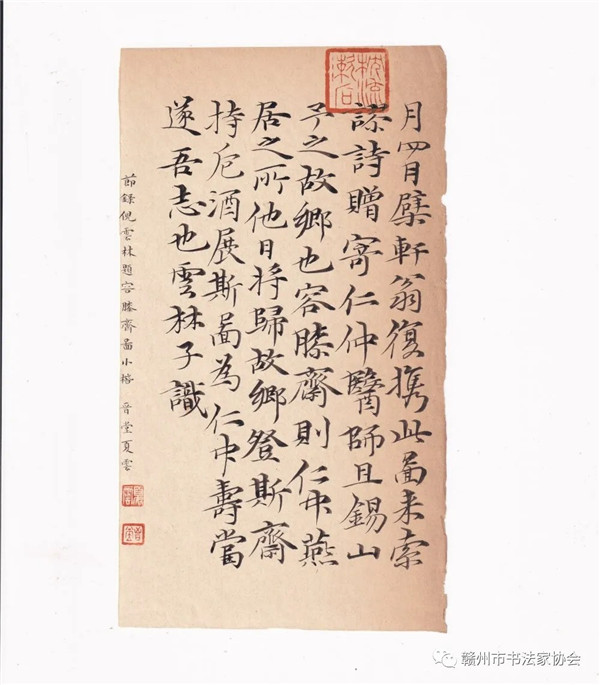 月四月檗軒翁復携此啚来索
謬詩贈寄仁仲醫師且錫山
予之故鄉也容膝齋則仁中燕
居之所他日将歸故鄉登斯齋
持卮酒展斯啚為仁中壽當
遂吾志也雲林子識
節錄倪雲林題容膝齋啚小榕 音堂夏雲
枕流漱石
赣州市书法家协会